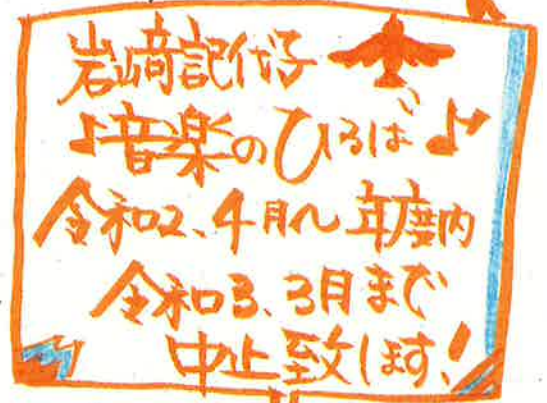 岩崎記代子
♪音楽のひろば♪
令和2、4月〜年度内
令和3、3月まで
中止致します!